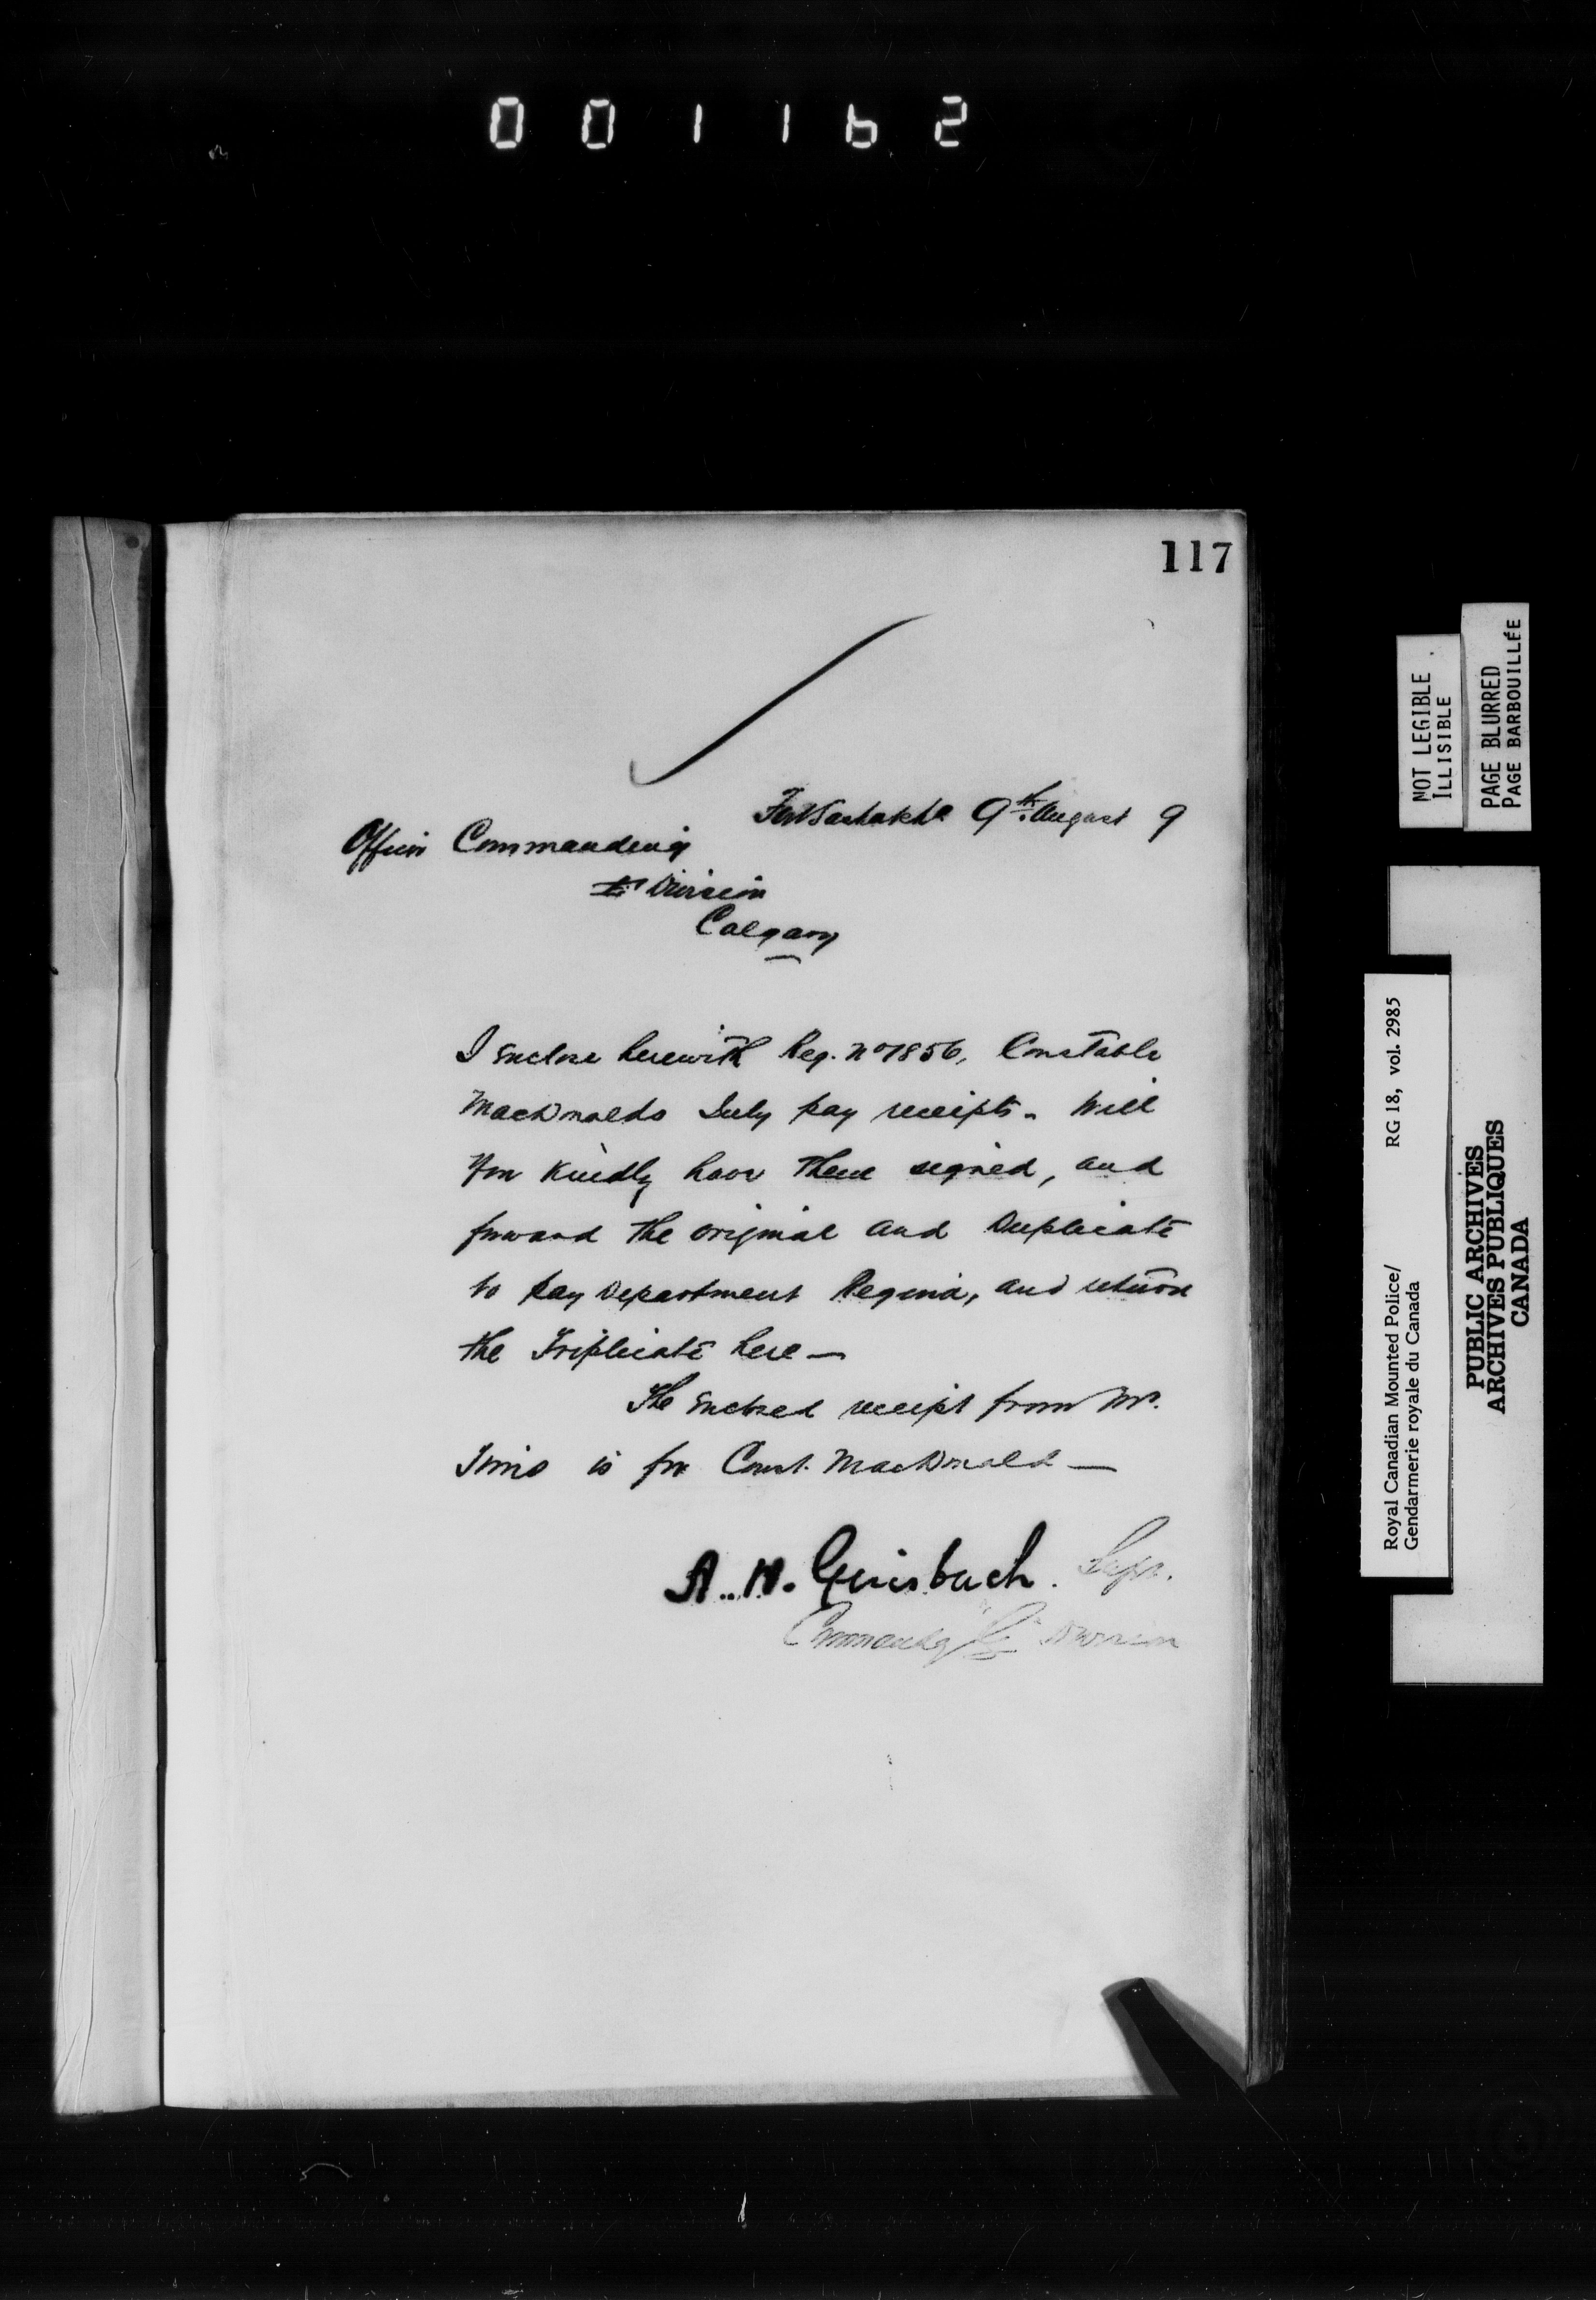 001162
117
Fort Saskatchn 9th August 9
Officer Commanding
"E" Division
Calgary
I enclose herewith Reg. No 1856, Constable
MacDonalds July pay receipts. Will
you kindly have them signed, and
forward the original and Duplicate
to Pay Department Regina, and return
the Triplicate here —
The enclosed receipt from Mr.
is for Const. MacDonald —
A. H. Griesbach. Supt.
Commandg "G" Division
NOT LEGIBLE
ILLISIBLE
PAGE BLURRED
PAGE BARBOUILLÉE
Royal Canadian Mounted Police/ RG 18, vol. 2985
Gendarmerie royale du Canada
PUBLIC ARCHIVES
ARCHIVES PUBLIQUES
CANADA